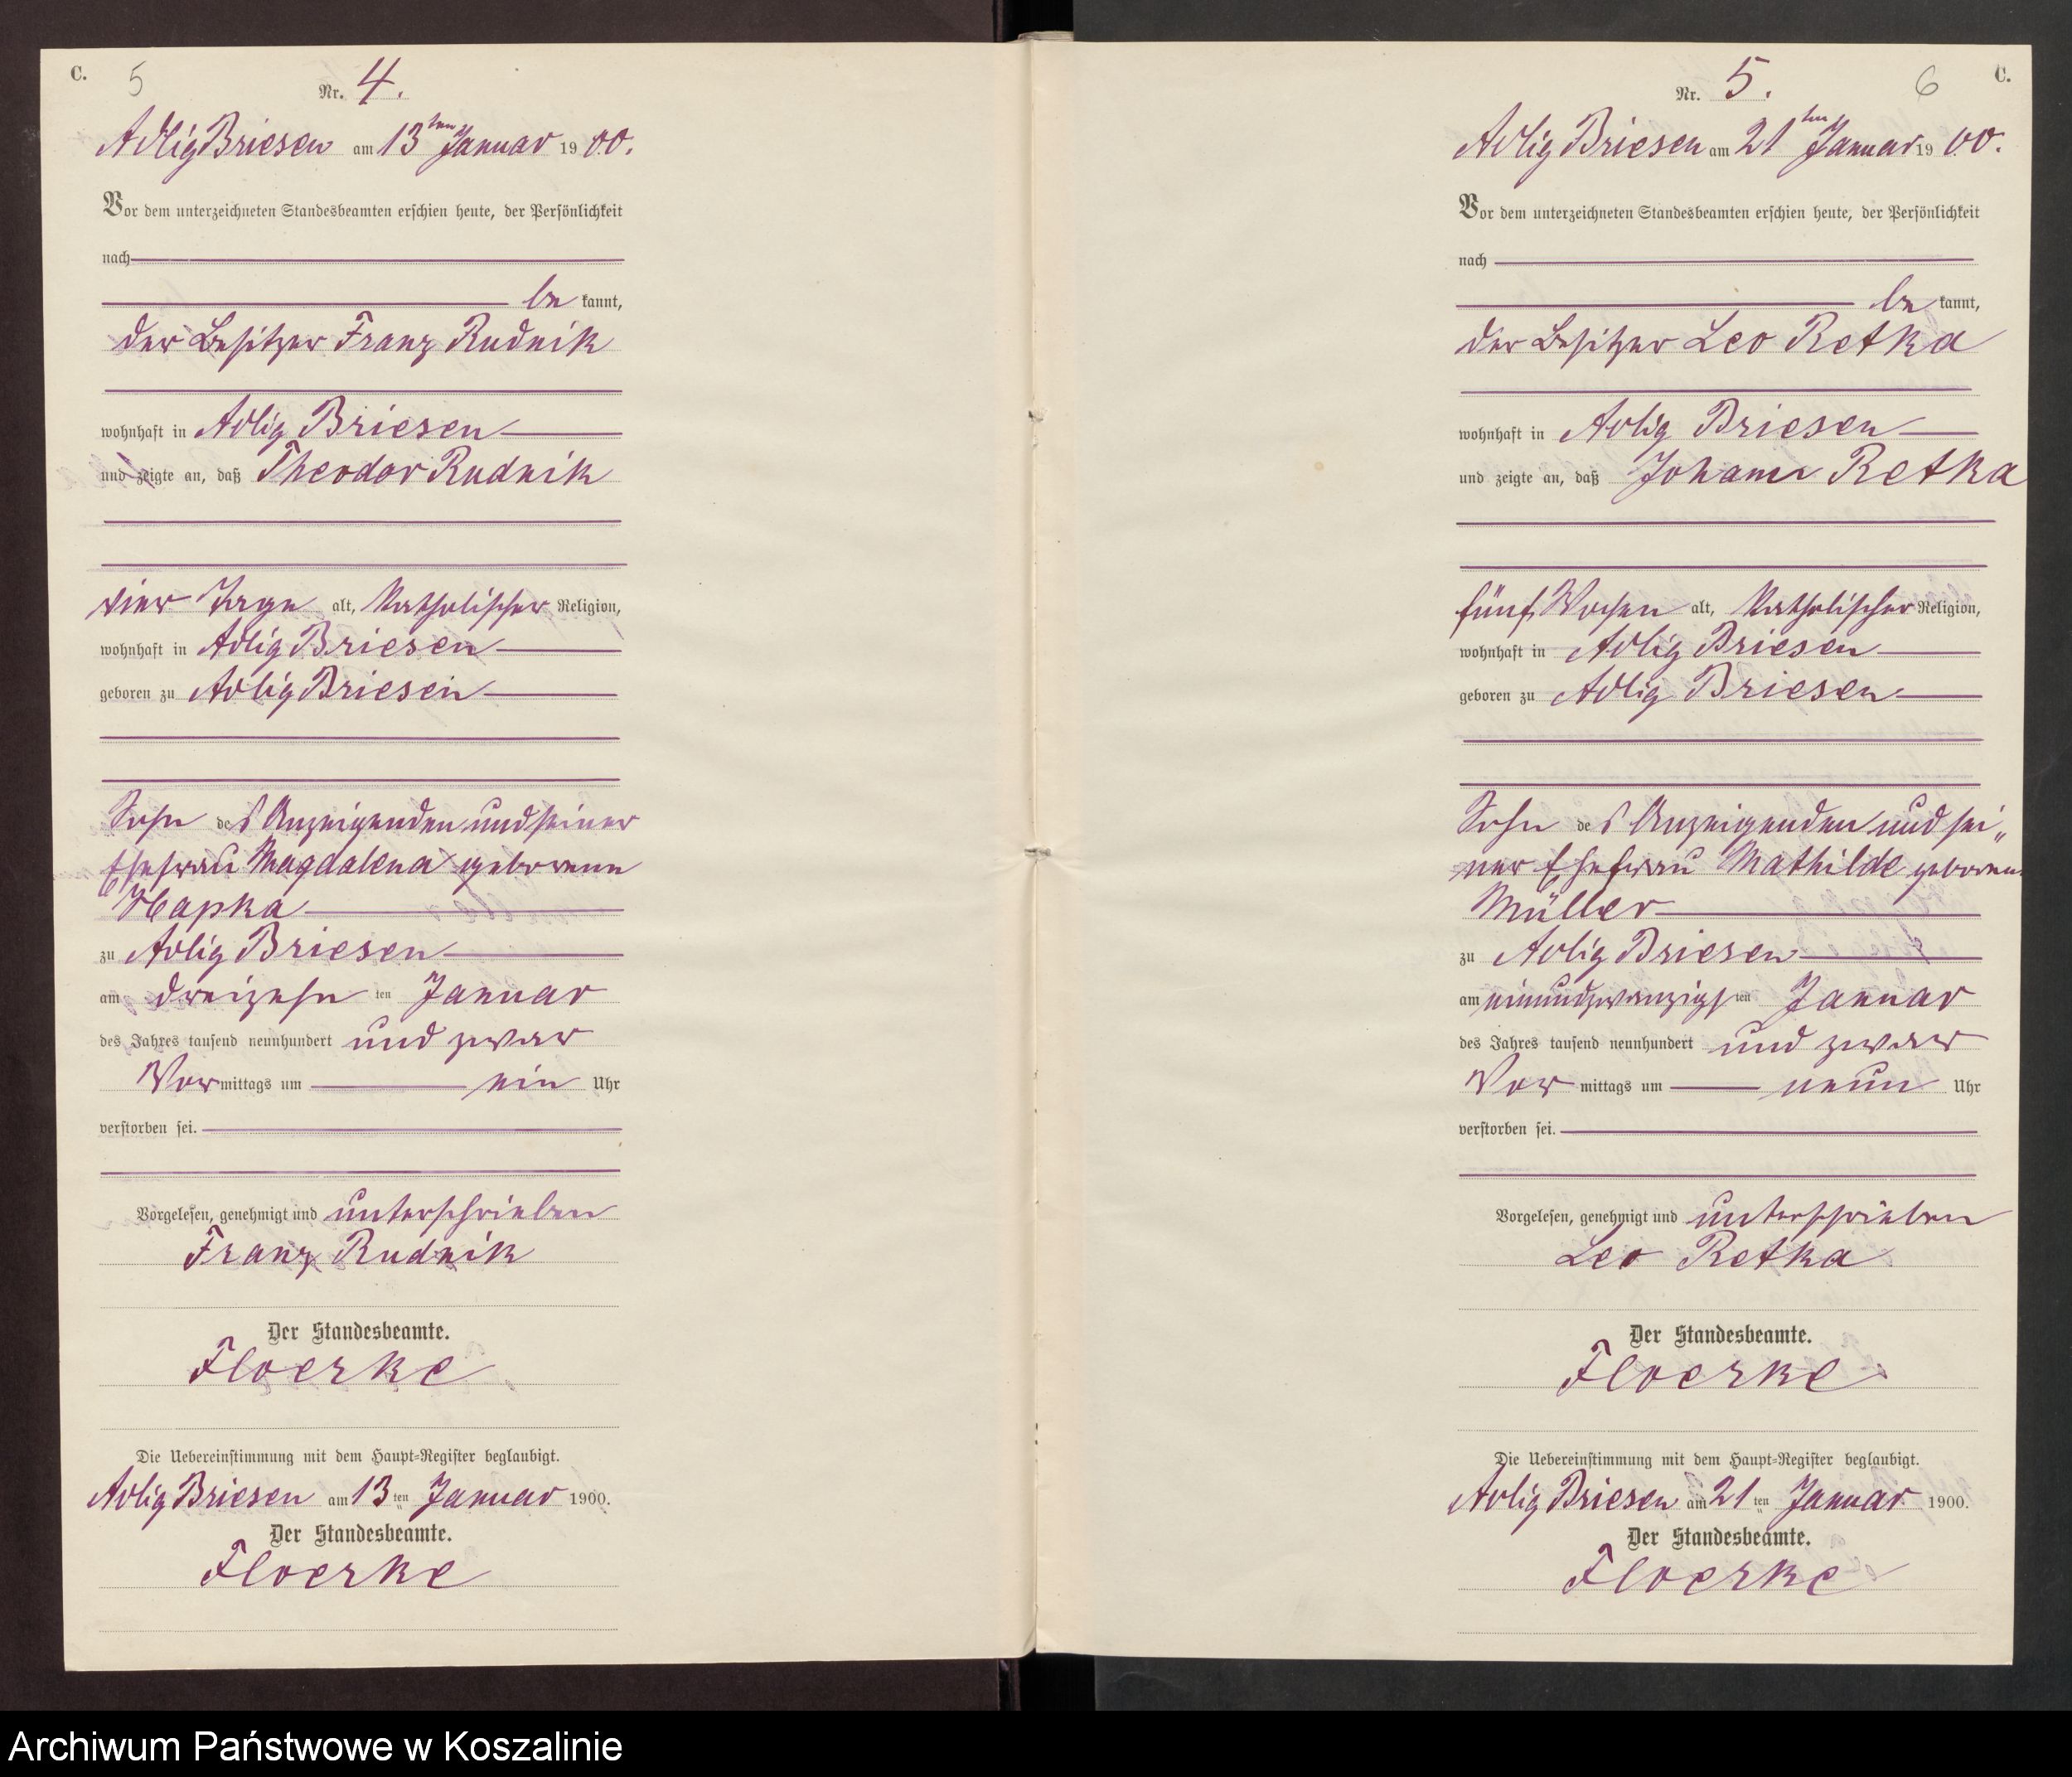 C.
5
Nr. 4.
Adlig Briesen am 13ten Januar 1900.
Vor dem unterzeichneten Standesbeamten erschien heute, der Persönlichkeit
nach
be kannt,
der Besitzer Franz Rudnik
wohnhaft in Adlig Briesen
und zeigte an, daß Theodor Rudnik
vier Tage alt, katholischer Religion,
wohnhaft in Adlig Briesen
geboren zu Adlig Briesen
Sohn des Anzeigenden und seiner
Ehefrau Magdalena geborene
zu Adlig Briesen
am dreizehn ten Januar
des Jahres tausend neunhundert und zwar
Vor mittags um ein Uhr
verstorben sei.
Vorgelesen, genehmigt und unterschrieben
Franz Rudnik
Der Standesbeamte.
Floerke
Die Uebereinstimmung mit dem Haupt-Register beglaubigt.
Adlig Briesen am 13 ten Januar 1900.
Der Standesbeamte.
Floerke
6
C.
Nr. 5.
Adlig Briesen am 21ten Januar 1900.
Vor dem unterzeichneten Standesbeamten erschien heute, der Persönlichkeit
nach
be kannt,
der Besitzer Leo Retka
wohnhaft in Adlig Briesen
und zeigte an, daß Johann Retka
fünf Wochen alt, katholischer Religion,
wohnhaft in Adlig Briesen
geboren zu Adlig Briesen
Sohn des Anzeigenden und sei„
ner Ehefrau Mathilde geboren.
Müller
zu Adlig Briesen
am einundzwanzigs ten Januar
des Jahres tausend neunhundert und zwar
Vor mittags um neun Uhr
verstorben sei.
Vorgelesen, genehmigt und unterschrieben
Leo Retka
Der Standesbeamte.
Floerke
Die Uebereinstimmung mit dem Haupt-Register beglaubigt.
Adlig Briesen am 21 ten Januar 1900.
Der Standesbeamte.
Floerke
Archiwum Państwowe w Koszalinie